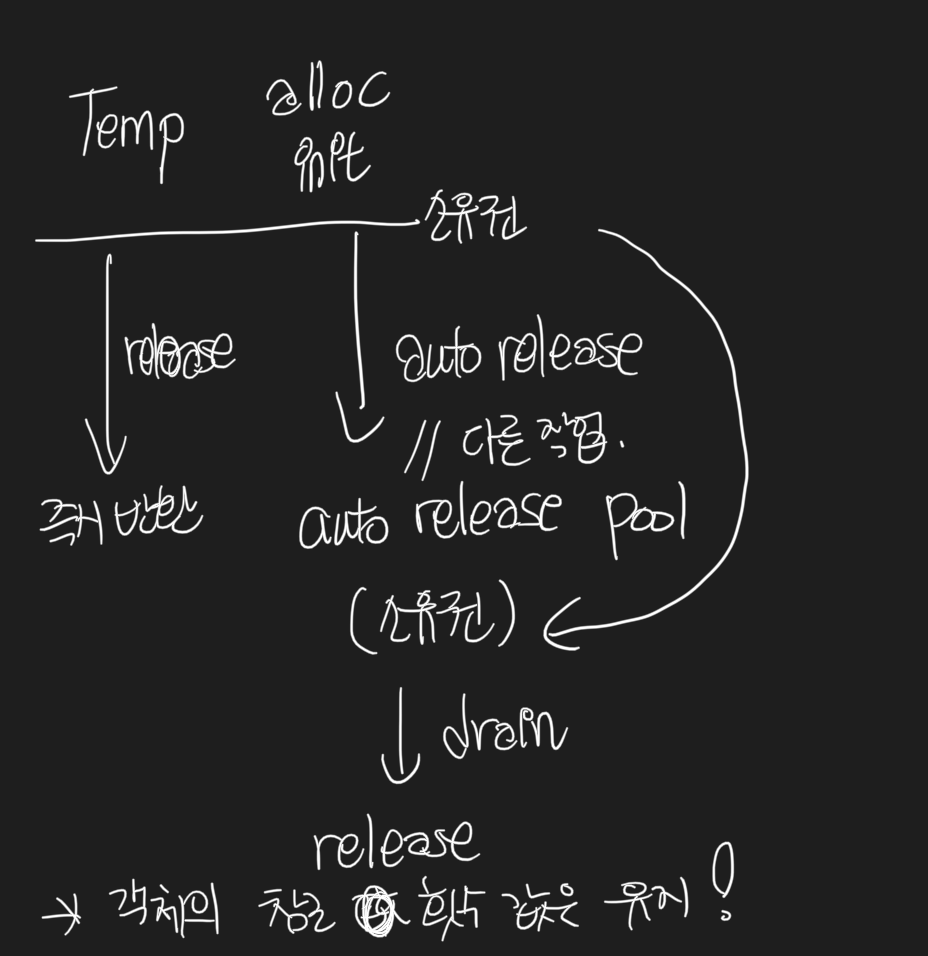 Temp alloc
init
소유권
release
auto release
// 다른 작업.
즉시 반환
auto release pool
(소유권)
drain
release
→ 객체의 참조 횟수 값은 유지!